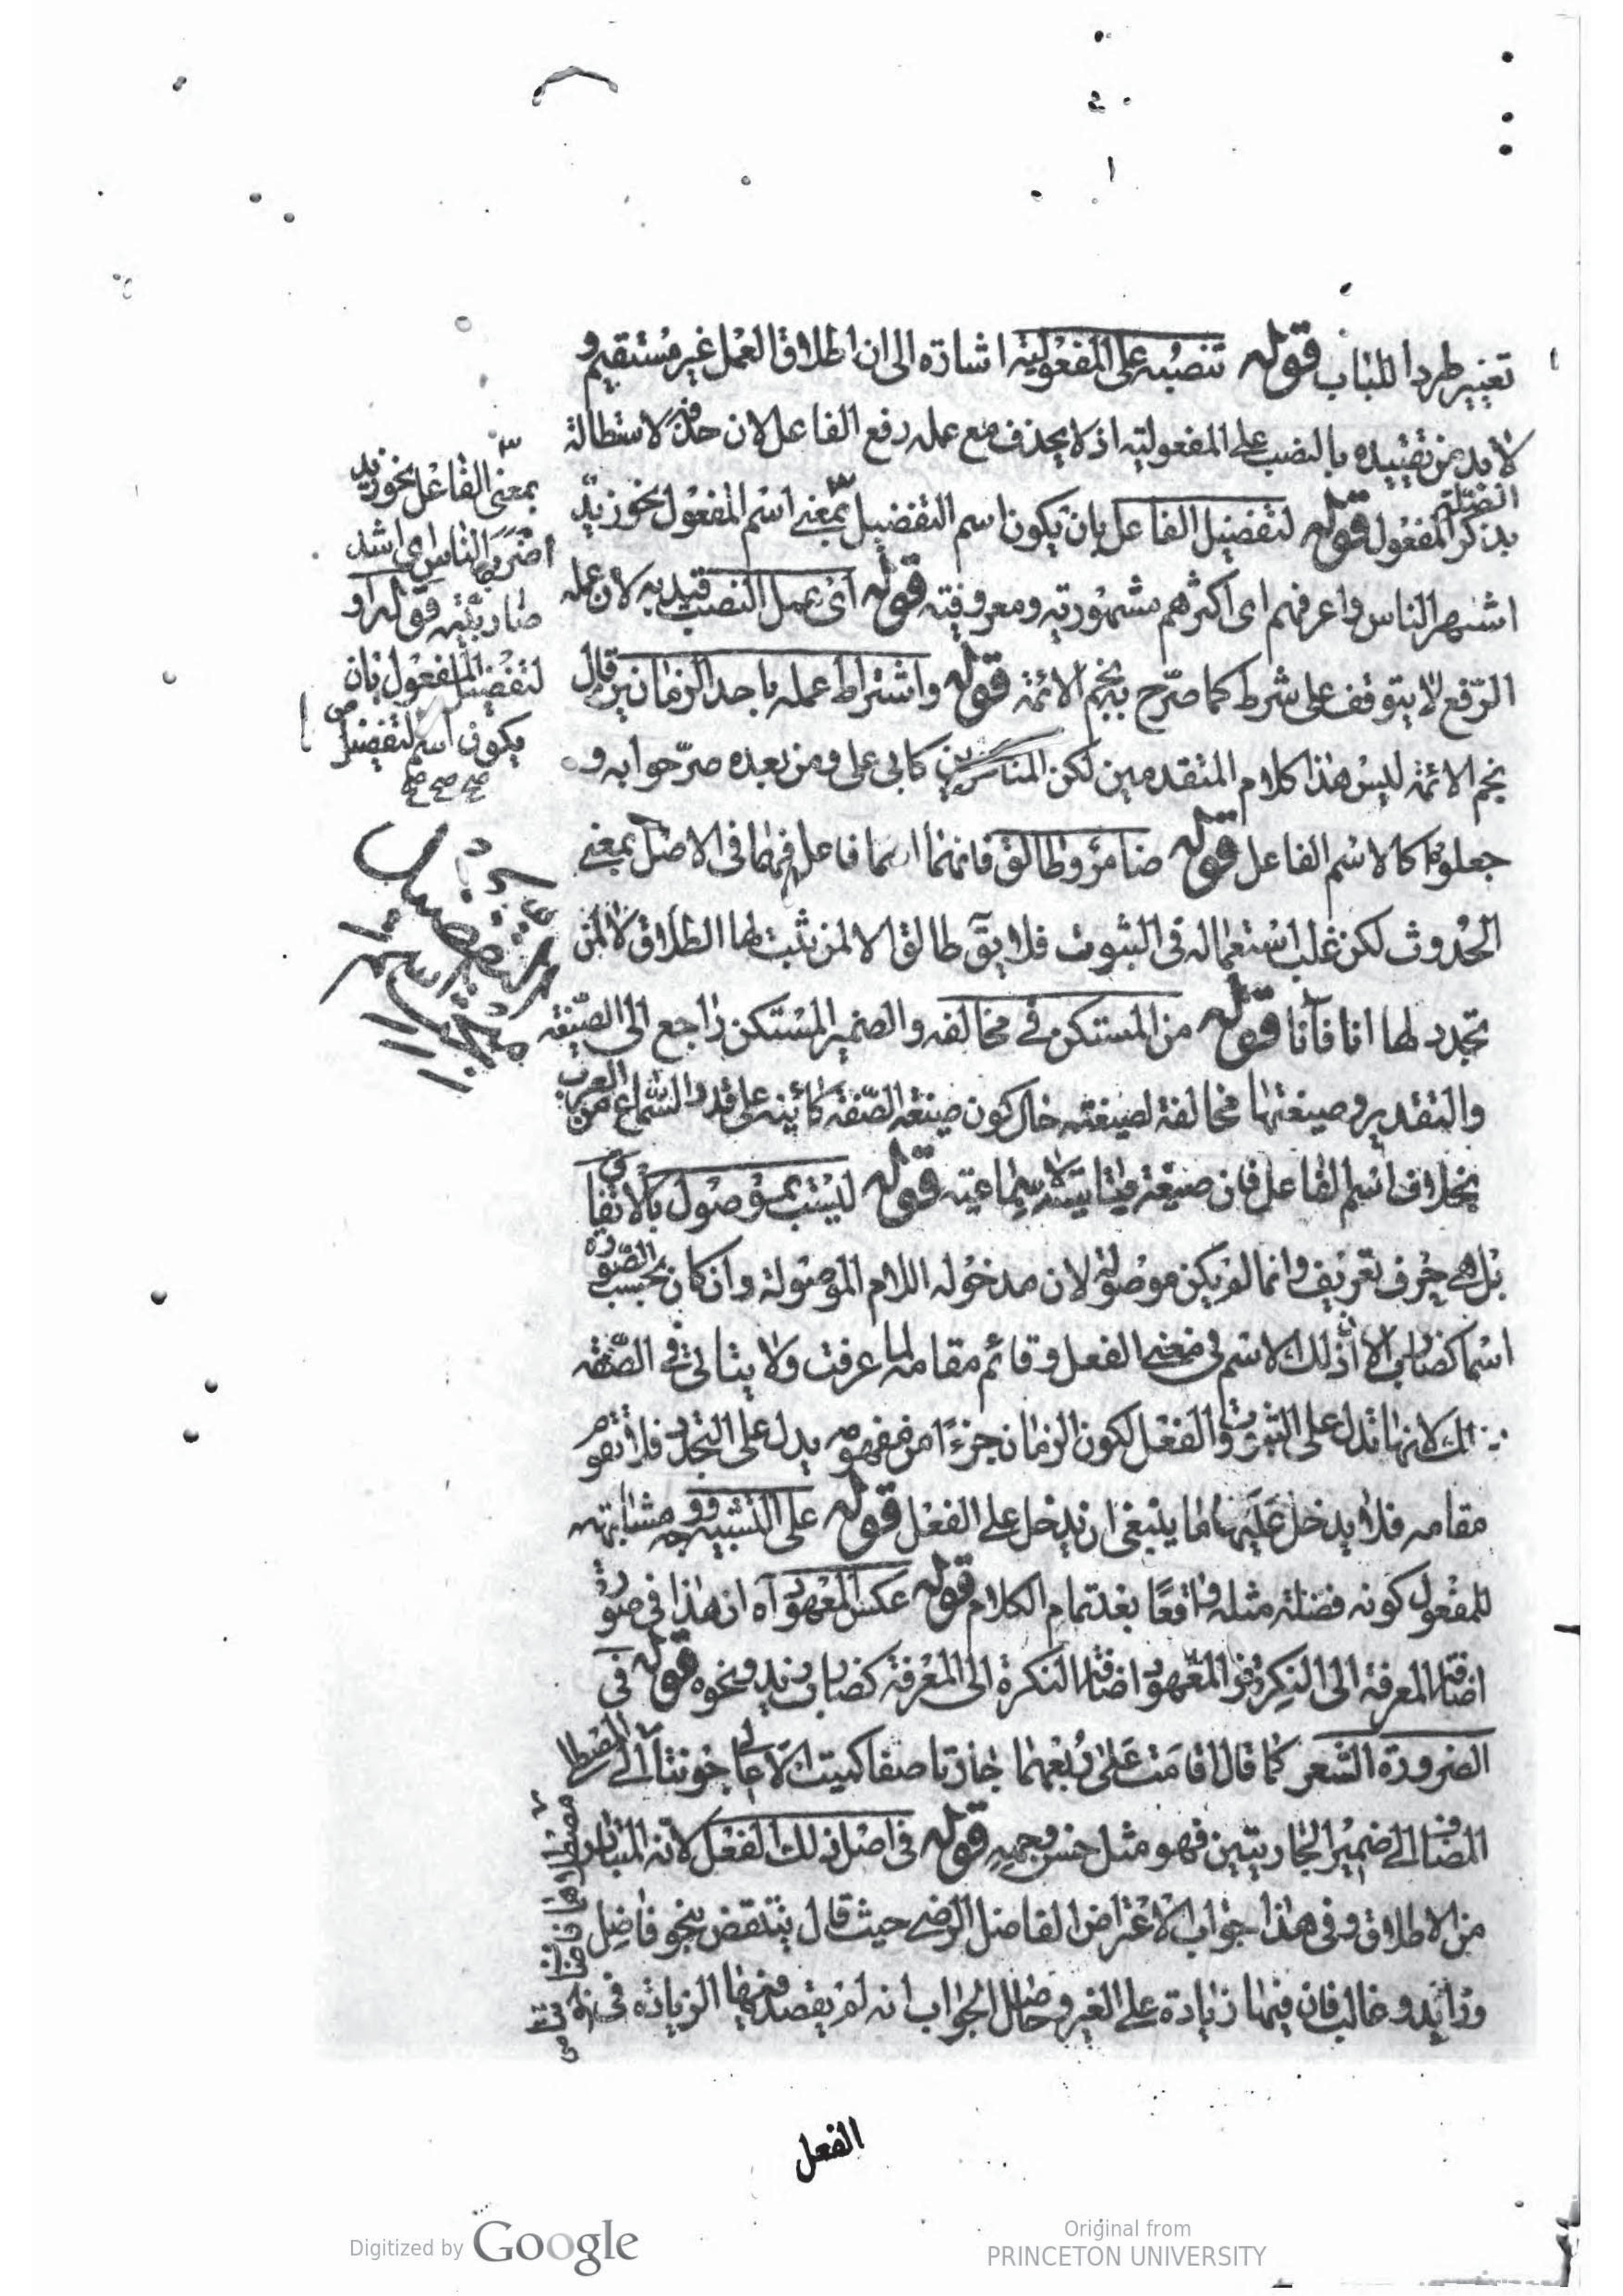 تغيير طردا للباب قوله تنصبه على المفعولية اشارة الى ان اطلاق العمل غير مستقيم و
لابد من تقييده بالنصب على المفعولية اذ لا يحذف مع عمله رفع الفاعل لان حذفه لاستطالة
الصلة
بذكر المفعول قوله لتفضيل الفاعل بان يكون اسم التفضيل بمعنى اسم المفعول نحو زيد
اشهر الناس واعرفهم اى اكثرهم مشهورية ومعروفية قوله اى عمل النصب قيد به لان عمله
الرفع لا يتوقف على شرط كما صرح به نجم الائمة قوله واشتراط عمله باحد الزمانين قال
نجم الائمة ليس هذا كلام المتقدمين لكن المتاخرين كابى على ومن بعده صرحوا به و
جعلوها كالاسم الفاعل قوله ضامر وطالق فانهما اسما فاعل فهما فى الاصل بمعنى
الحدوث لكن غلب استعماله فى الثبوت فلا يق طالق الا لمن ثبت لها الطلاق لا لمن
تجدد لها انا فانا قوله من المستكن فى مخالفة والضمير المستكن راجع الى الصيغة
والتقدير وصيغتها مخالفة لصيغته حال كون صيغة الصفة كائنة على قدر السماع من العرب
بخلاف اسم الفاعل فان صيغته قياسية لا سماعية قوله ليست بموصول بالاتفاق
بل هى حرف تعريف وانما لم يكن موصولة لان مدخوله اللام الموصولة وان كان بحسب الصورة
اسما كضارب الا ان ذلك الاسم فى معنى الفعل وقائم مقامه لما عرفت ولا يتاتى فى الصفة
ذلك لانها تدل على الثبوت والفعل لكون الزمان جزءا من مفهومه يدل على التجدد فلا تقوم
مقامه فلا يدخل عليها ما ينبغى ان يدخل على الفعل قوله على التشبيه ووجه مشابهته
للمفعول كونه فضلة مثله واقعا بعد تمام الكلام قوله عكس المعهود آه ان هذا فى صورة
اضافة المعرفة الى النكرة والمعهود اضافة النكرة الى المعرفة كضارب زيد ونحوه قوله فى
الضرورة الشعر كما قال اقامت على ربعهما جارتا صفا كميتا الاعالى جونتا
المضاف الى ضمير الجاريتين فهو مثل حسن وجهه قوله فى اصل ذلك الفعل لانه المتبادر
من الاطلاق وفى هذا جواب الاعتراض الفاضل الرضى حيث قال ينتقض بنحو فاضل
وزايد وغالب فان فيها زيادة على الغير وحاصل الجواب انه لم يقصد فيها الزيادة فى
بمعنى الفاعل نحو زيد
اضرب الناس اى اشد
ضاربية قوله او
لتفضيل المفعول بان
يكون اسم التفضيل
صح صح صح
الفعل
Digitized by Google
Original from
PRINCETON UNIVERSITY